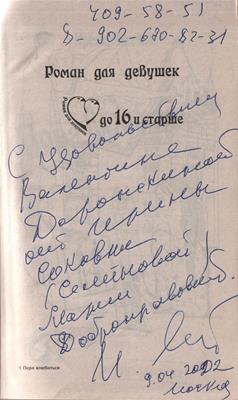 409-58-51
8-902-670-82-31
Роман для девушек
до 16 и старше
С удовольствием
Валентине
от Ирины
(Семёновой)
Марии
Доброправовой.
9.04 2002
Москва
1 Пора влюбиться